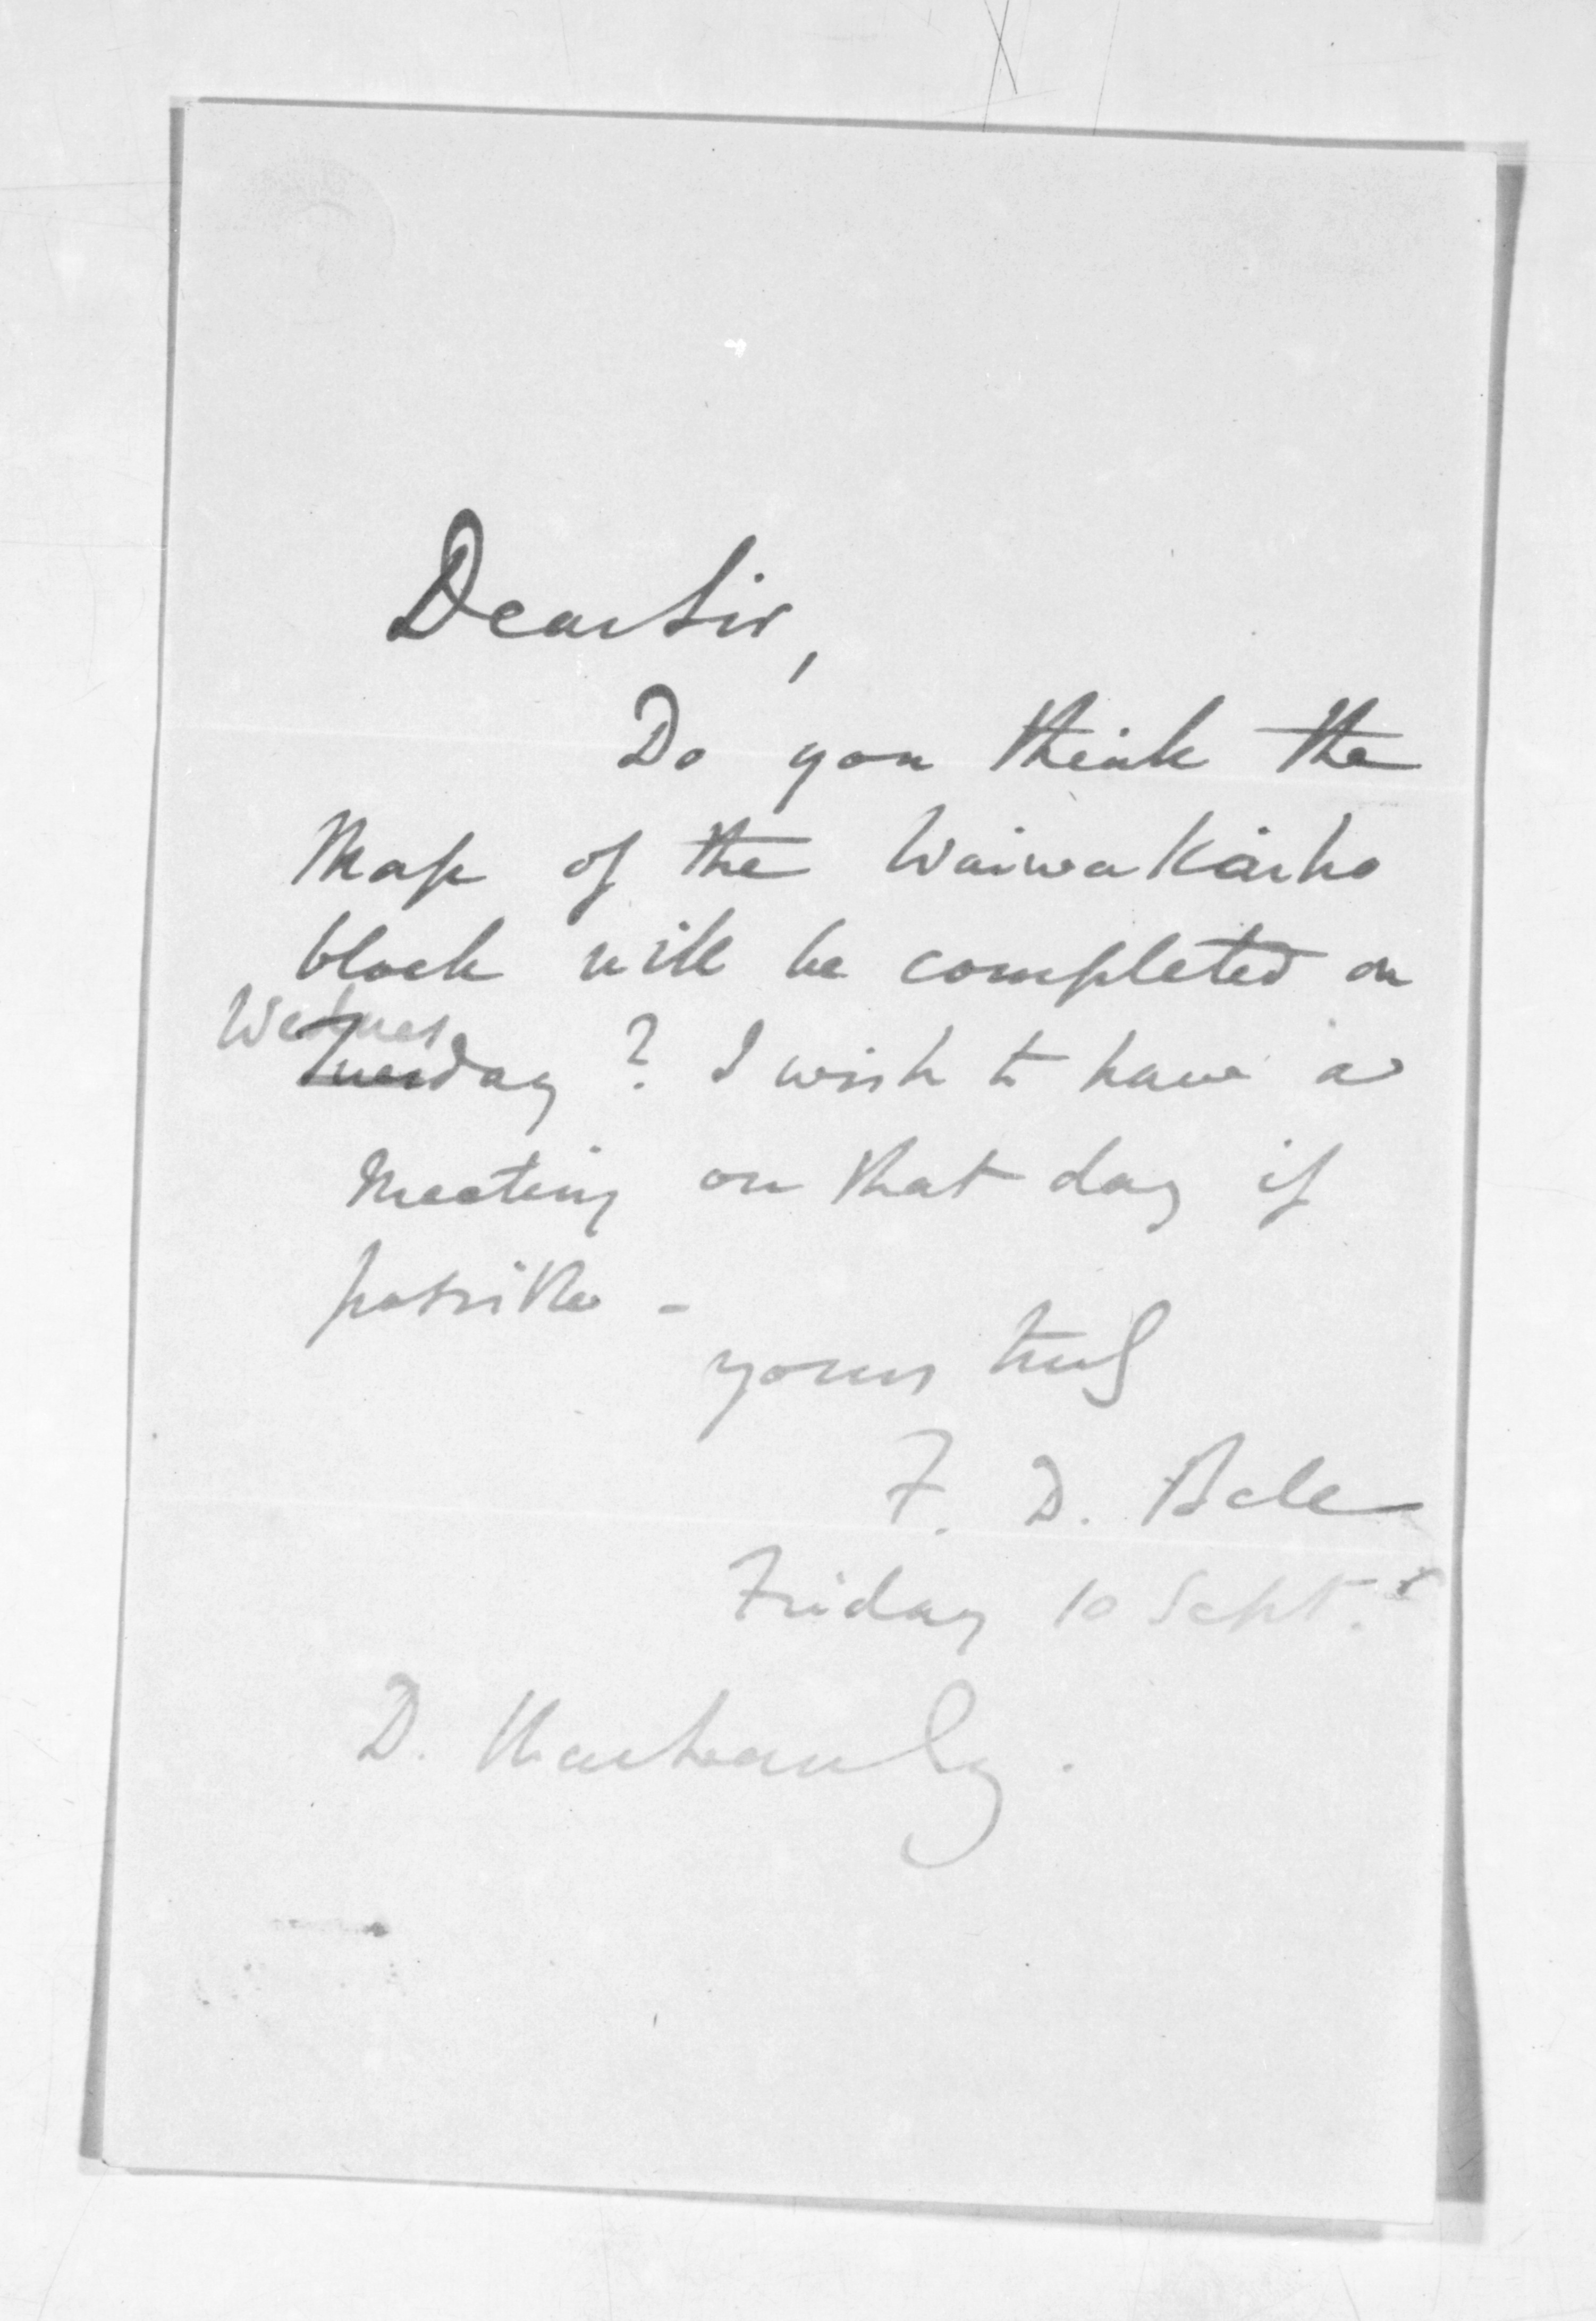 Dear Sir,
Do you think the
Map of the Waiwakaiho
block will be completed on
Wednes
Tuesday? I wish to have a
Meeting on that day if
possible -
yours truly
F. D. Bell
Friday 10 Sept.
D.